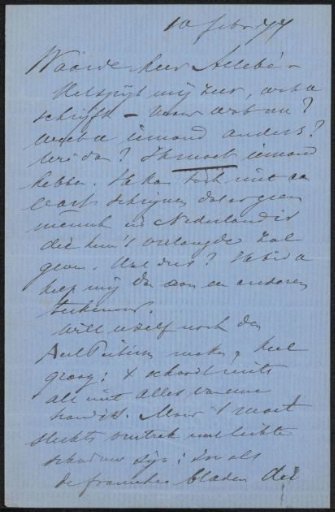 10 febr: 77
Waarde heer Allebé –
Het spijt mij zeer, wat u
schrijft – maar wat nu?
weet u iemand anders?
wie dan? Ik moet iemand
hebben. Ik kan toch niet aan
schrijven dat er geen
mensch in Nederland is
die hem 't verlangde zal
geven. Wat dus? Ik bid u
help mij dan aan een anderen
teekenaar.
Will uzelf noch den
maken, heel
graag: 't schaadt niets
als niet alles van eene
hand is. Maar 't moet
slechts omtrek met lichte
schaduw zijn: zoo als
de fransche bladen die